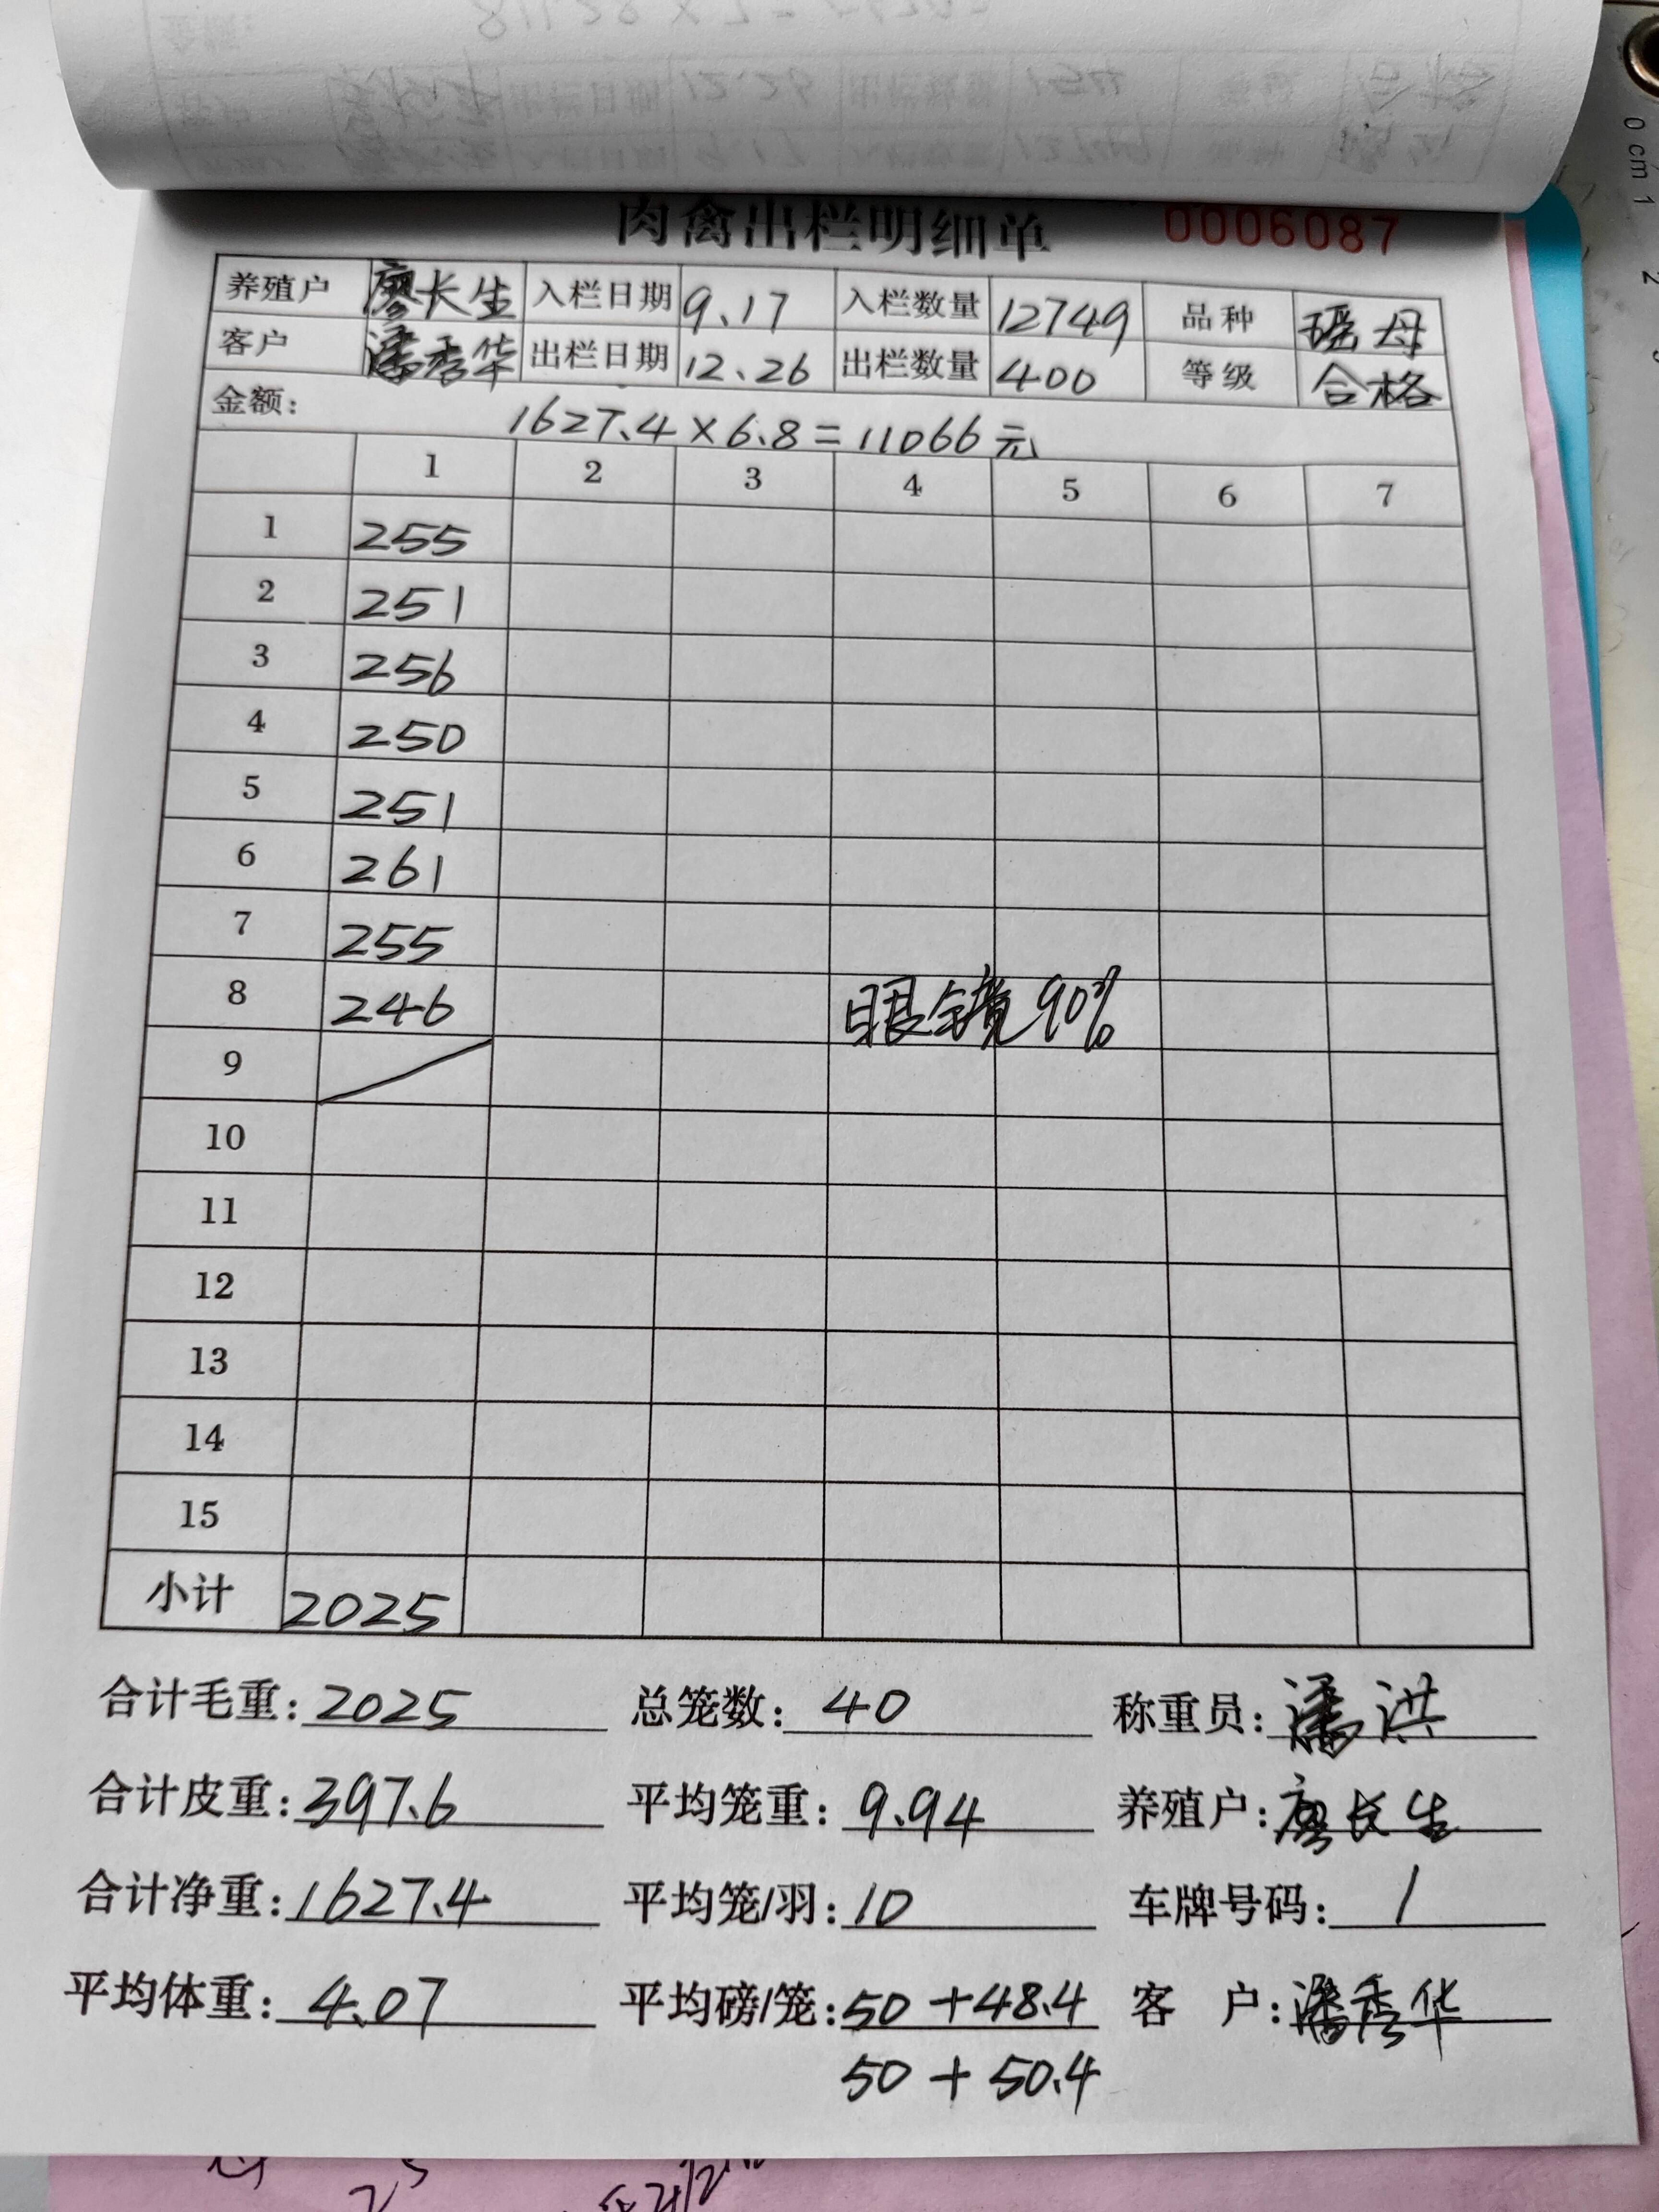 肉禽出栏明细单 0006087
养殖户 廖长生 入栏日期 9.17 入栏数量 12749 品种 瑶母
客户 潘秀华 出栏日期 12.26 出栏数量 400 等级 合格
金额: 1627.4×6.8=11066元
1 2 3 4 5 6 7
1 255
2 251
3 256
4 250
5 251
6 261
7 255
8 246 眼镜90%
9
10
11
12
13
14
15
小计 2025
合计毛重: 2025 总笼数: 40 称重员: 潘洪
合计皮重: 397.6 平均笼重: 9.94 养殖户: 廖长生
合计净重: 1627.4 平均笼/羽: 10 车牌号码: /
平均体重: 4.07 平均磅/笼: 50+48.4 客户: 潘秀华
50+50.4
0 cm 1 2